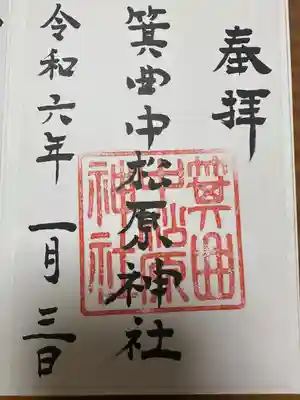 奉拝
箕曲中松原神社
箕曲
中松原
神社
令和六年 一月 三日